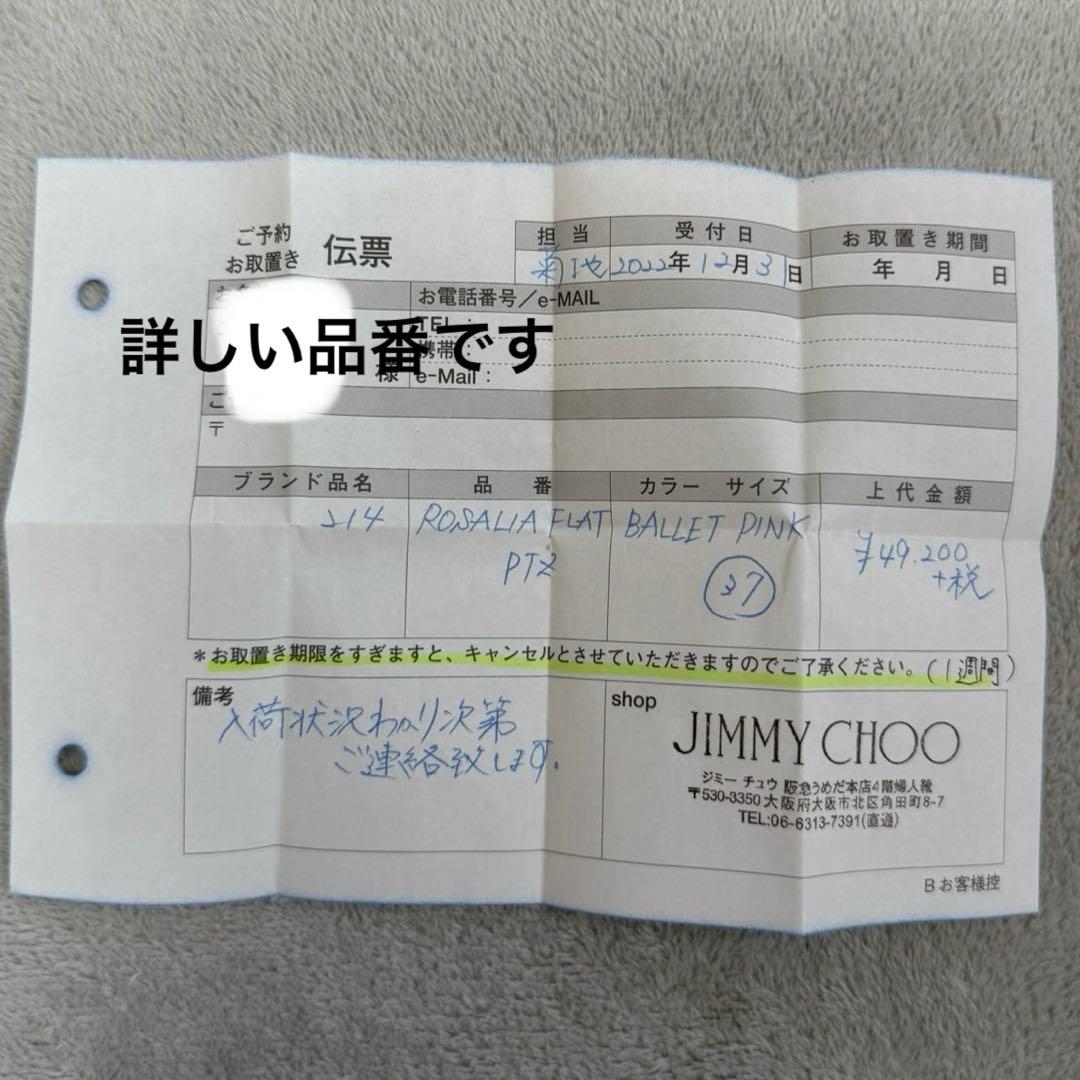 ご予約
お取置き
伝票
担当 受付日 お取置き期間
菊池 2022年12月31日 年 月 日
お電話番号/e-MAIL
TEL :
詳しい品番です
携帯 :
様 e-Mail :
ご
〒
ブランド品名 品番 カラー サイズ 上代金額
214 ROSALIA FLAT BALLET PINK ¥49.200
PTZ 37 +税
*お取置き期限をすぎますと、キャンセルとさせていただきますのでご了承ください。(1週間)
備考
入荷状況わかり次第
ご連絡致します。
shop
JIMMY CHOO
ジミー チュウ 阪急うめだ本店4階婦人靴
〒530-3350 大阪府大阪市北区角田町8-7
TEL:06-6313-7391(直通)
B お客様控